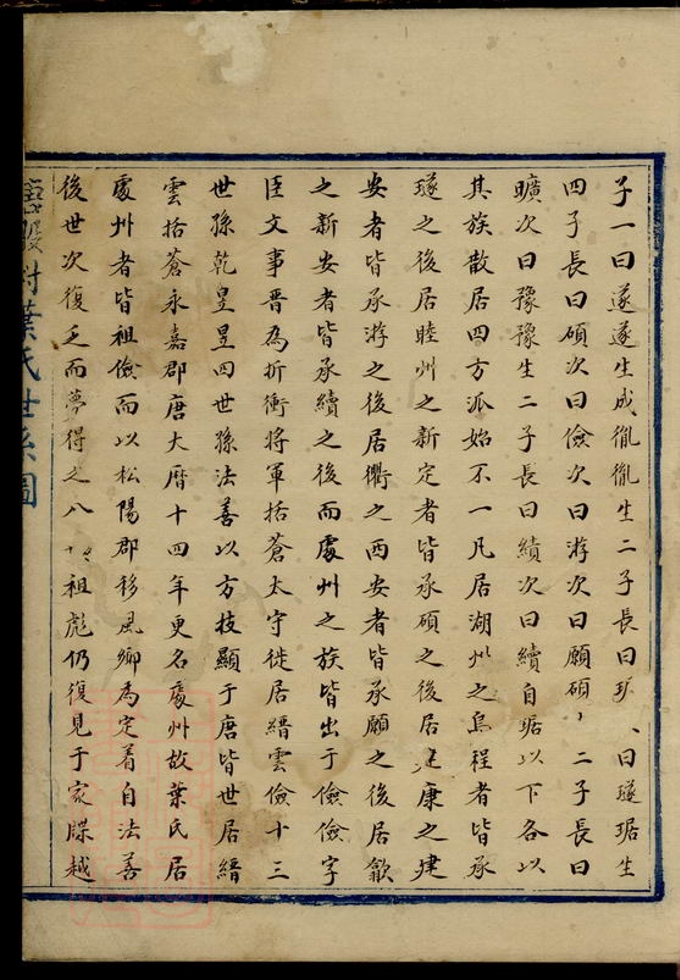 子一曰遂遂生成胤胤生二子長曰㻌曰璲琚生
四子長曰碩次曰儉次曰游次曰願碩生二子長曰
曠次曰豫豫生二子長曰績次曰續自琚以下各以
其族散居四方派始不一凡居湖州之烏程者皆承
璲之後居睦州之新定者皆承碩之後居建康之建
安者皆承游之後居衢之西安者皆承願之後居歙
之新安者皆承續之後而處州之族皆出于儉儉字
臣文事晋為折衝將軍括蒼太守徙居縉雲儉十三
世孫乾昱昱四世孫法善以方技顯于唐皆世居縉
雲括蒼永嘉郡唐大曆十四年更名處州故葉氏居
處州者皆祖儉而以松陽郡移風鄉為定着自法善
後世次復乏而夢得之八祖彪仍復見于家牒越
葉氏世系圖